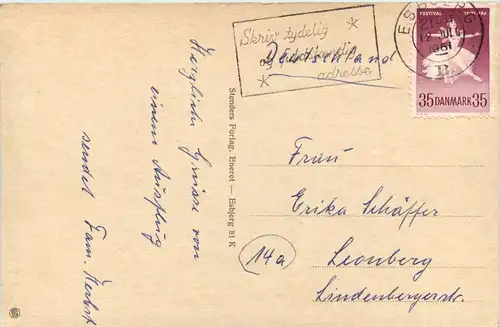 Herzliche Grüsse von
einem Ausflug
sendet Fam. Herbst
Stenders Forlag, Eneret — Esbjerg 81 K
Skriv tydelig
og fuldstændig
adresse
Deutschland
ESBJERG
1961
FESTIVAL
35 DANMARK 35
Frau
Erika Schäffer
(14a) Leonberg
Lindenbergerstr.